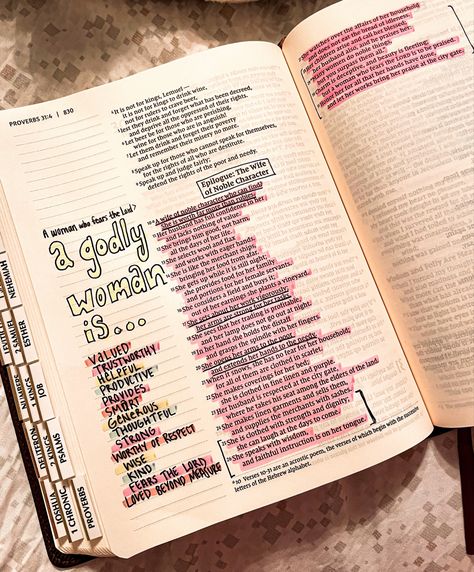 PROVERBS 31:4 | 830
4 It is not for kings, Lemuel—
it is not for kings to drink wine,
not for rulers to crave beer,
5 lest they drink and forget what has been decreed,
and deprive all the oppressed of their rights.
6 Let beer be for those who are perishing,
wine for those who are in anguish!
7 Let them drink and forget their poverty
and remember their misery no more.
8 Speak up for those who cannot speak for themselves,
for the rights of all who are destitute.
9 Speak up and judge fairly;
defend the rights of the poor and needy.
Epilogue: The Wife
of Noble Character
10 A wife of noble character who can find?
She is worth far more than rubies.
11 Her husband has full confidence in her
and lacks nothing of value.
12 She brings him good, not harm,
all the days of her life.
13 She selects wool and flax
and works with eager hands.
14 She is like the merchant ships,
bringing her food from afar.
15 She gets up while it is still night;
she provides food for her family
and portions for her
16 She considers a field and buys it;
out of her earnings she plants a vineyard.
17 She sets about her work vigorously;
her arms are strong for her tasks.
18 She sees that her trading is profitable,
and her lamp does not go out at night.
19 In her hand she holds the distaff
and grasps the spindle with her fingers.
20 She opens her arms to the poor
and extends her hands to the needy.
21 When it snows, she has no fear for her household;
for all of them are clothed in scarlet.
22 She makes coverings for her bed;
she is clothed in fine linen and purple.
23 Her husband is respected at the city gate,
where he takes his seat among the elders of the land.
24 She makes linen garments and sells them,
and supplies the merchants with sashes.
25 She is clothed with strength and dignity;
she can laugh at the days to come.
26 She speaks with wisdom,
and faithful instruction is on her tongue.
10 Verses 10-31 are an acrostic poem, the verses of which begin with the successive
letters of the Hebrew alphabet.
A woman who fears the Lord?
a godly
woman
is...
VALUED
TRUSTWORTHY
HELPFUL
PRODUCTIVE
PROVIDES
SMART
GENEROUS
THOUGHTFUL
STRONG
WORTHY OF RESPECT
WISE
KIND
FEARS THE LORD
LOVED BEYOND MEASURE
NEHEMIAH
ESTHER
2 SAMUEL
JOB
KINGS
NUMBERS
PSALMS
DEUTERON
1 CHRONIC
JOSHUA
PROVERBS
27 She watches over the affairs of her household
and does not eat the bread of idleness.
28 Her children arise and call her blessed;
her husband also, and he praises her:
29 "Many women do noble things,
but you surpass them all."
30 Charm is deceptive, and beauty is fleeting;
but a woman who fears the LORD is to be praised.
31 Honor her for all that her hands have done,
and let her works bring her praise at the city gate.